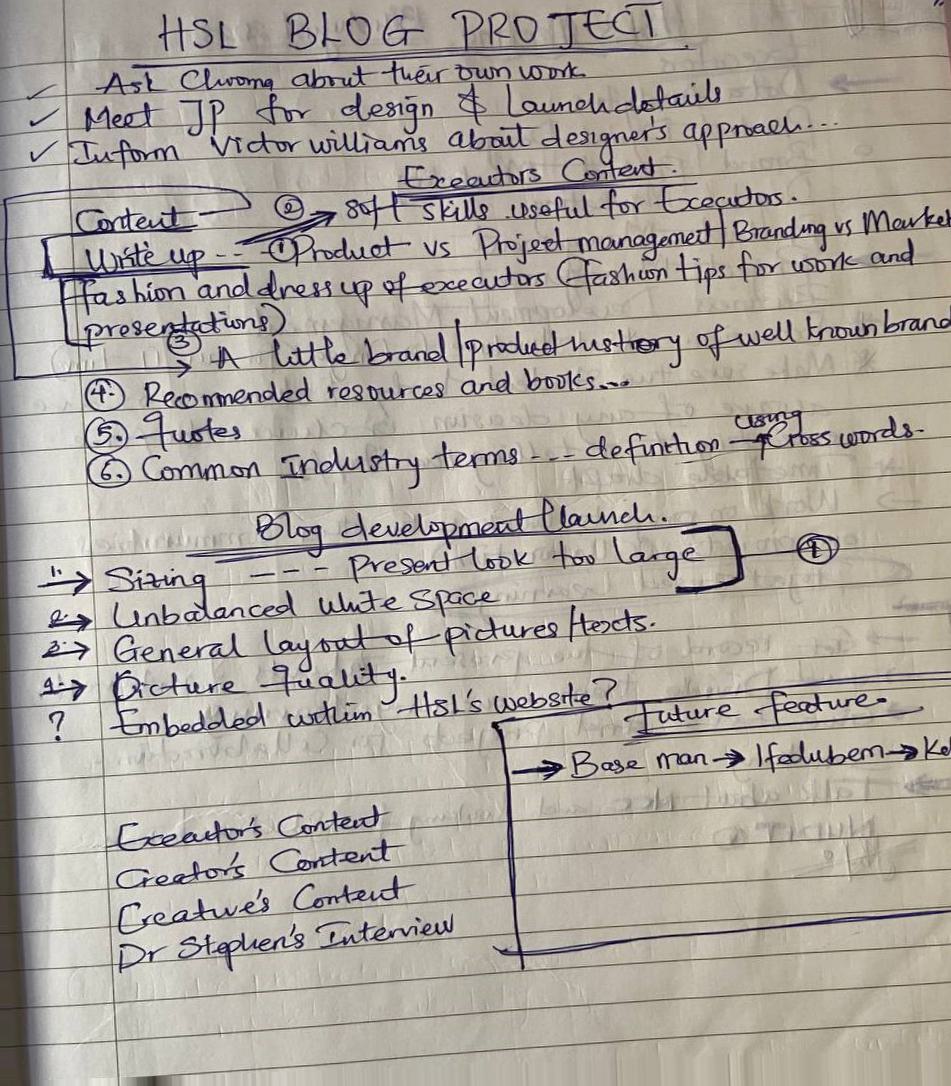 HSL BLOG PROJECT
✓ Ask Chioma about their own work
✓ Meet JP for design & Launch details
✓ Inform Victor williams about designer's approach...
Executors Content.
Content ② → soft skills useful for Executors.
Write up -- ① Product vs Project management | Branding vs Market
fashion and dress up of executors (fashion tips for work and
presentations)
③ → A little brand/product history of well known brand
④ Recommended resources and books...
⑤. Quotes
using
⑥. Common Industry terms --- definition → Cross words.
Blog development & launch.
1. → Sizing --- Present look too large ①
2. → Unbalanced white space
3. → General layout of pictures/texts.
4. → Picture Quality.
? Embedded within HSL's website?
Future feature.
→ Base man → Ifedubem → Ke
Executor's Content
Creator's Content
Creative's Content
Dr Stephen's Interview